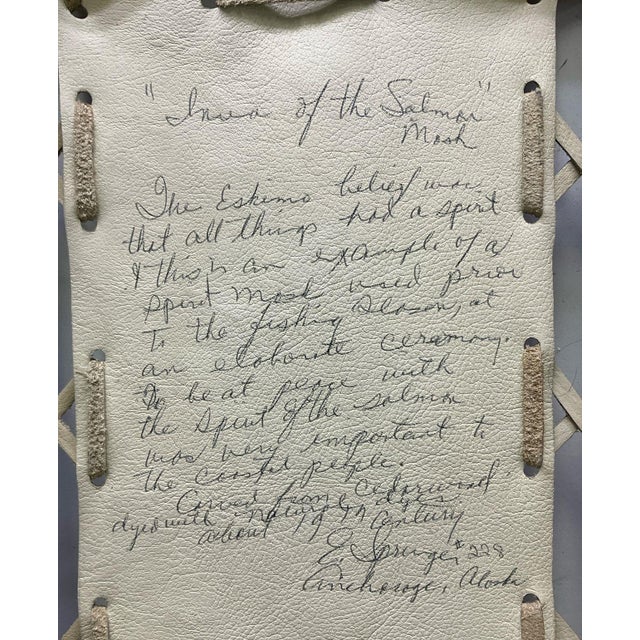 "Inua of the Salmon"
Mask
The Eskimo belief was
that all things had a spirt
& this is an example of a
spirit Mask used prior
to the fishing season, at
an elaborate ceremony.
To be at peace with
the spirit of the salmon
was very important to
the coastal people.
Carved from cedarwood
dyed with nature dyes
about 19th Century
E Sprunger #228
Anchorage, Alaska